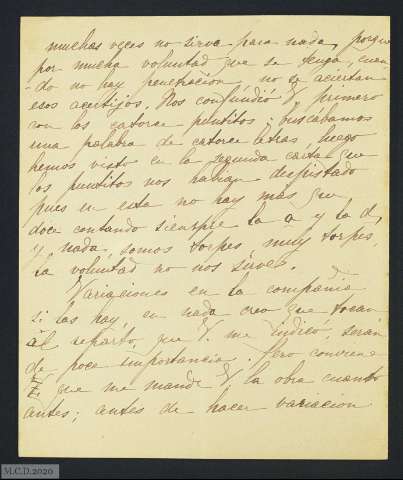 muchas veces no sirve para nada, porque
por mucha voluntad que se tenga, cuan
do no hay penetración no se aciertan
esos acertijos. Nos confundió V. primero
con los catorce puntitos; buscábamos
una palabra de catorce letras, luego
hemos visto en la segunda carta que
los puntitos nos habían despistado
pues en esta no hay más que
doce contando siempre la a y la d,
y nada, somos torpes, muy torpes,
la voluntad no nos sirve.
Variaciones en la compañía
si las hay, en nada creo que tocan
al reparto, que V. me indicó, serán
de poca importancia. Pero conviene
que me mande V. la obra cuanto
antes; antes de hacer variacion
M.C.D. 2020